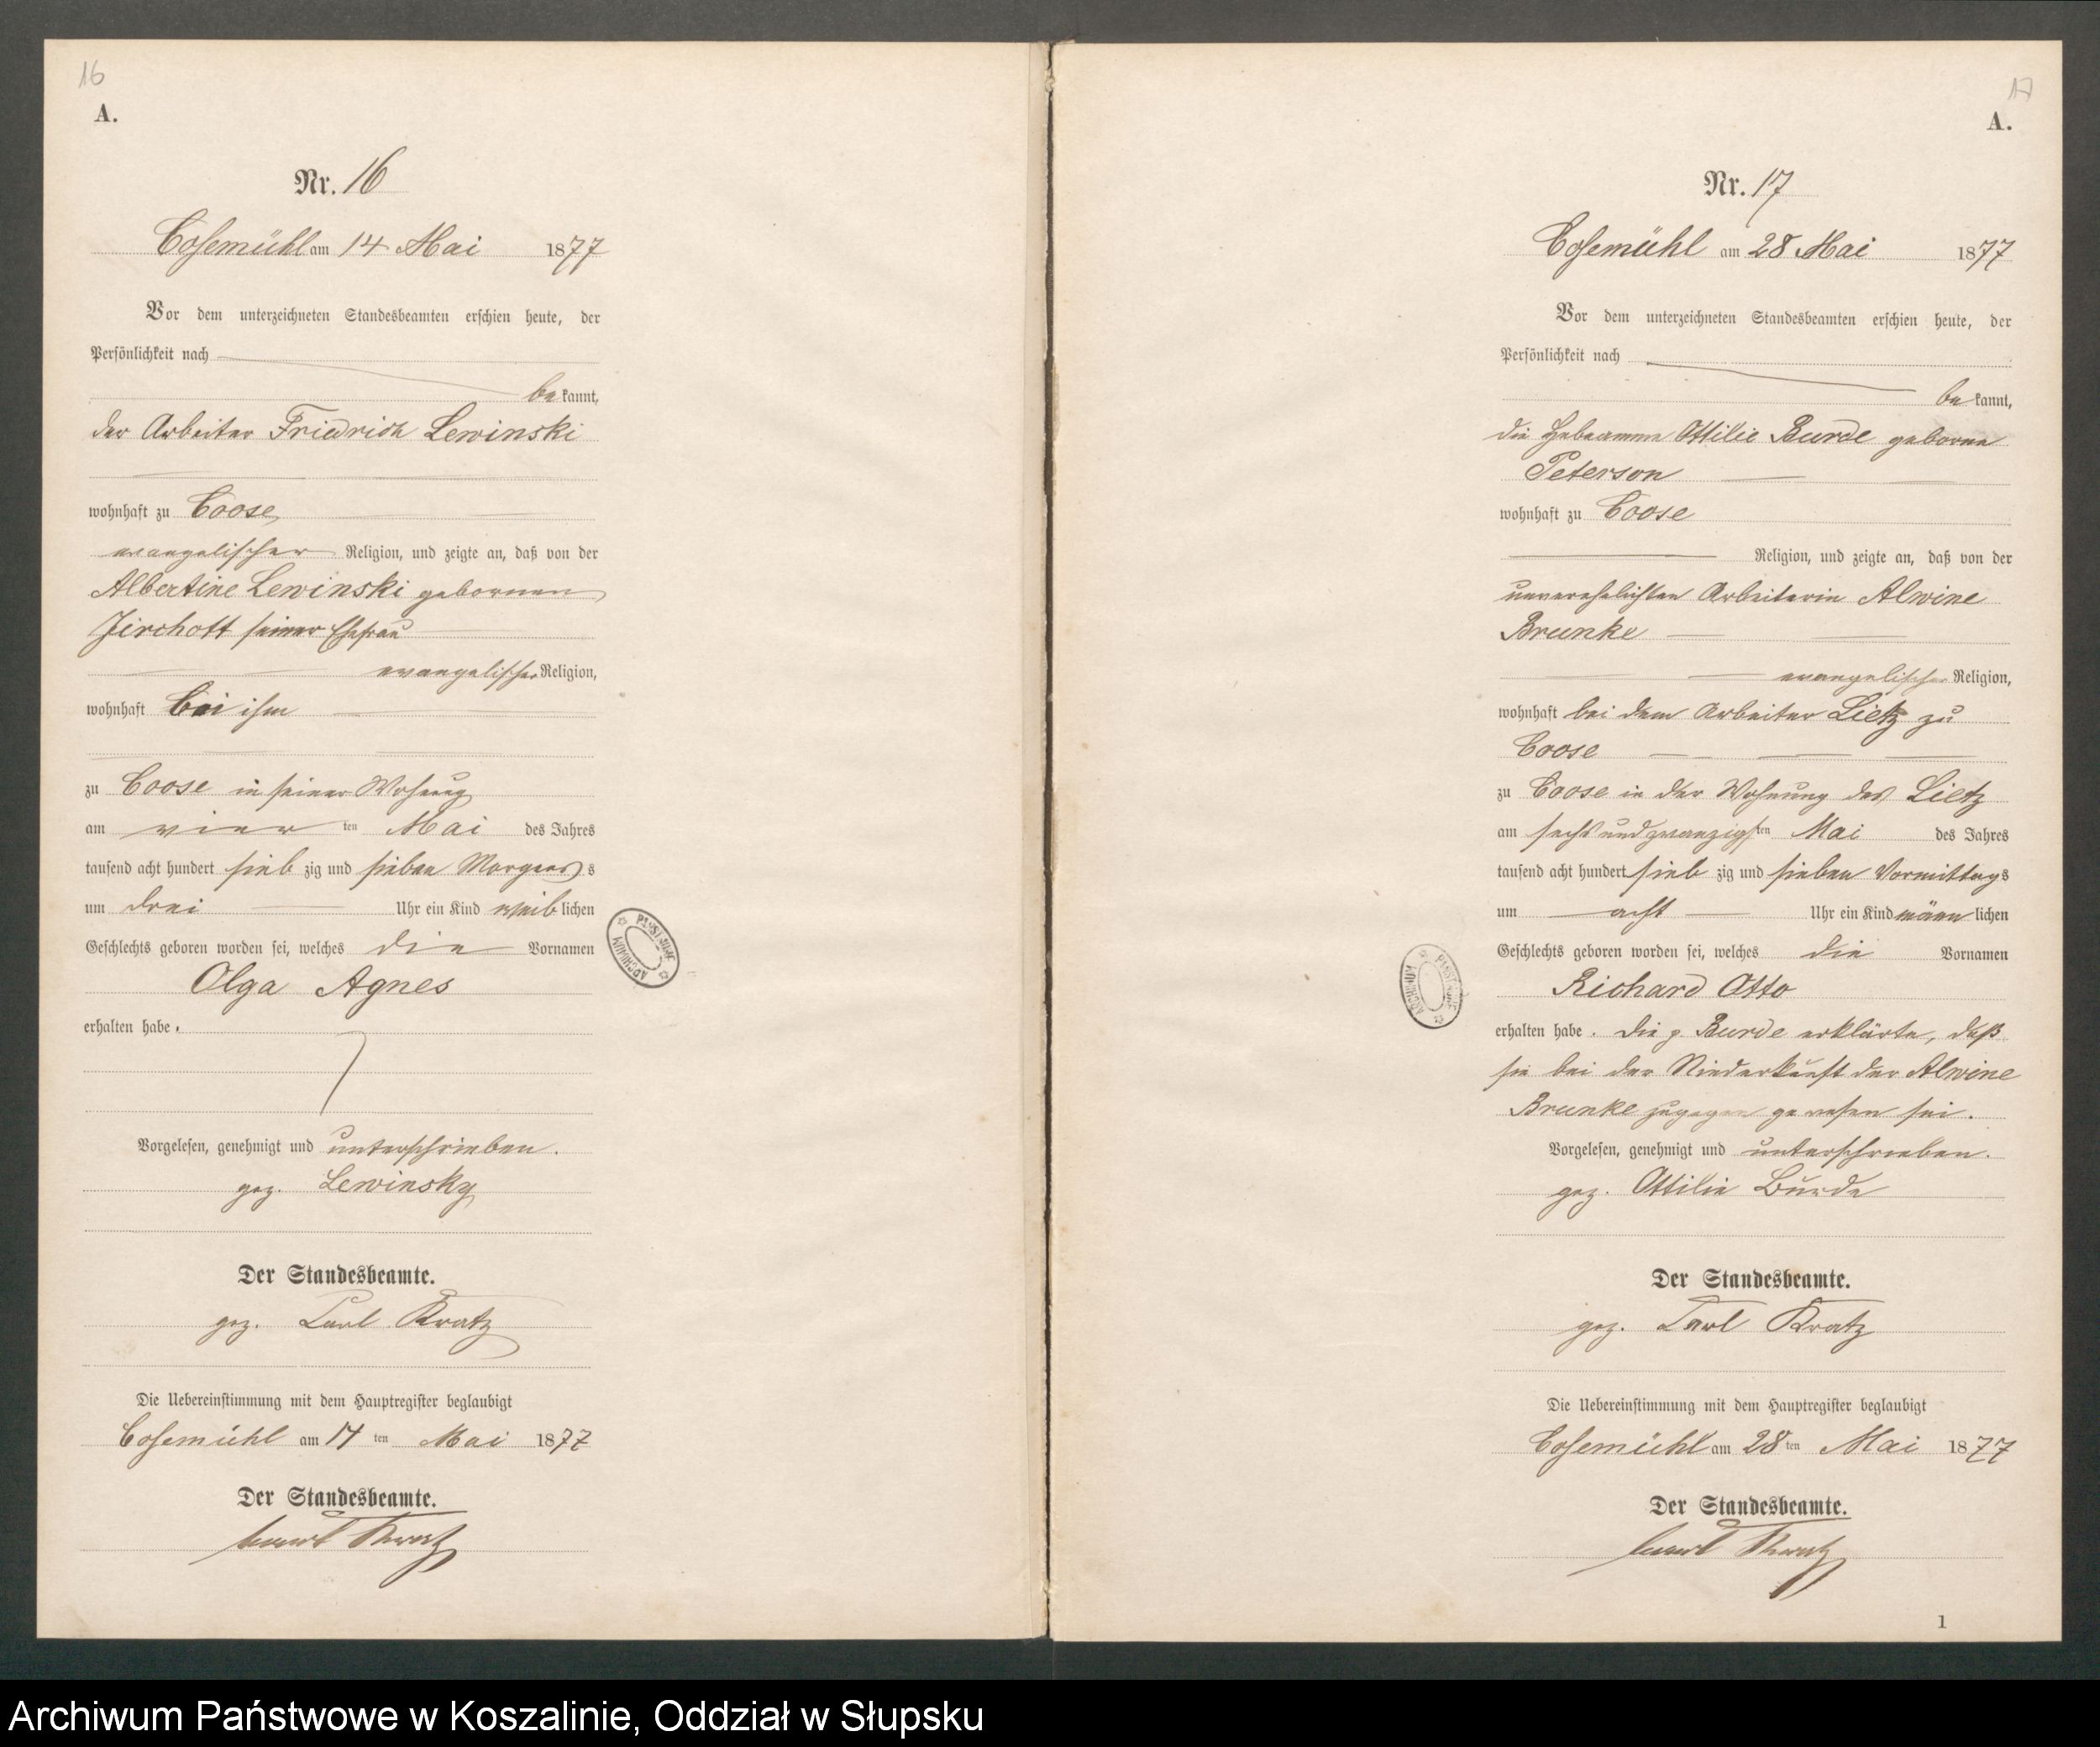 16
A.
Nr. 16
Cosemühl am 14 Mai 1877
Vor dem unterzeichneten Standesbeamten erschien heute, der
Persönlichkeit nach
bekannt,
der Arbeiter Friedrich Lewinski
wohnhaft zu Coose
evangelischer Religion, und zeigte an, daß von der
Albertine Lewinski gebornen
Jirchott seiner Ehefrau
evangelischer Religion,
wohnhaft bei ihm
zu Coose in seiner Wohnung
am vierten Mai des Jahres
tausend acht hundert siebzig und sieben Morgens
um drei Uhr ein Kind weiblichen
Geschlechts geboren worden sei, welches die Vornamen
Olga Agnes
erhalten habe.
Vorgelesen, genehmigt und unterschrieben.
gez. Lewinsky
Der Standesbeamte.
gez. Carl Kratz
Die Uebereinstimmung mit dem Hauptregister beglaubigt
Cosemühl am 14ten Mai 1877
Der Standesbeamte.
Carl Kratz
17
A.
Nr. 17
Cosemühl am 28 Mai 1877
Vor dem unterzeichneten Standesbeamten erschien heute, der
Persönlichkeit nach
bekannt,
die Hebeamme Ottilie Burde geborne
Peterson
wohnhaft zu Coose
Religion, und zeigte an, daß von der
unverehelichten Arbeiterin Alwine
Brunke
evangelischer Religion,
wohnhaft bei dem Arbeiter Lietz zu
Coose
zu Coose in der Wohnung des Lietz
am sechs und zwanzigsten Mai des Jahres
tausend acht hundert siebzig und sieben Vormittags
um acht Uhr ein Kind männlichen
Geschlechts geboren worden sei, welches die Vornamen
Richard Otto
erhalten habe. Die p. Burde erklärte, daß
sie bei der Niederkunft der Alwine
Brunke zugegen gewesen sei.
Vorgelesen, genehmigt und unterschrieben.
gez. Ottilie Burde
Der Standesbeamte.
gez. Carl Kratz
Die Uebereinstimmung mit dem Hauptregister beglaubigt
Cosemühl am 28ten Mai 1877
Der Standesbeamte.
Carl Kratz
1
ARCHIWUM PAŃSTWOWE
ARCHIWUM PAŃSTWOWE
Archiwum Państwowe w Koszalinie, Oddział w Słupsku